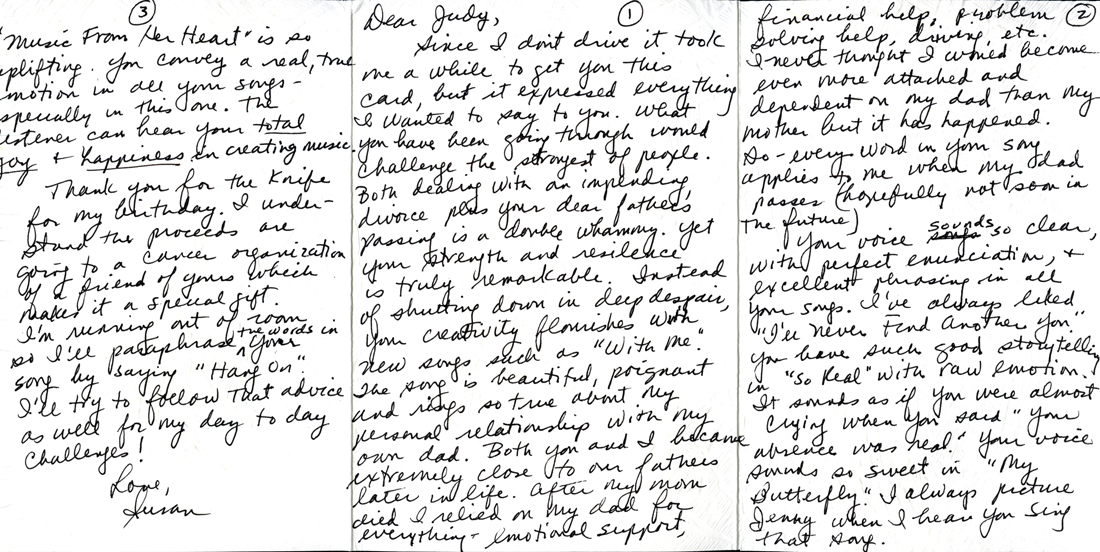 ①
Dear Judy,
Since I don't drive it took
me a while to get you this
card, but it expressed everything
I wanted to say to you. What
you have been going through would
challenge the strongest of people.
Both dealing with an impending
divorce plus your dear fathers
passing is a double whammy. Yet
your strength and resilence
is truly remarkable. Instead
of shutting down in deep despair,
your creativity flourishes with
new songs such as "With Me."
The song is beautiful, poignant
and rings so true about my
personal relationship with my
own dad. Both you and I became
extremely close to our fathers
later in life. After my mom
died I relied on my dad for
everything - emotional support,
②
financial help, problem
solving help, driving, etc.
I never thought I would become
even more attached and
dependent on my dad than my
mother but it has happened.
So - every word in your song
applies to me when my dad
passes (hopefully not soon in
the future)
Your voice sounds so clear,
with perfect enunciation, +
excellent phrasing in all
your songs. I've always liked
"I'll Never Find Another You."
You have such good storytelling
in "So Real" with raw emotion.
It sounds as if you were almost
crying when you said "your
absence was real." Your voice
sounds so sweet in "My
Butterfly." I always picture
Jenny when I hear you sing
that song.
③
"Music From Her Heart" is so
uplifting. You convey a real, true
emotion in all your songs -
especially in this one. The
listener can hear your total
joy + happiness in creating music.
Thank you for the Knife
for my birthday. I under-
stand the proceeds are
going to a cancer organization
of a friend of yours which
makes it a special gift.
I'm running out of room
so I'll paraphrase the words in your
song by saying "Hang On".
I'll try to follow that advice
as well for my day to day
challenges!
Love,
Susan